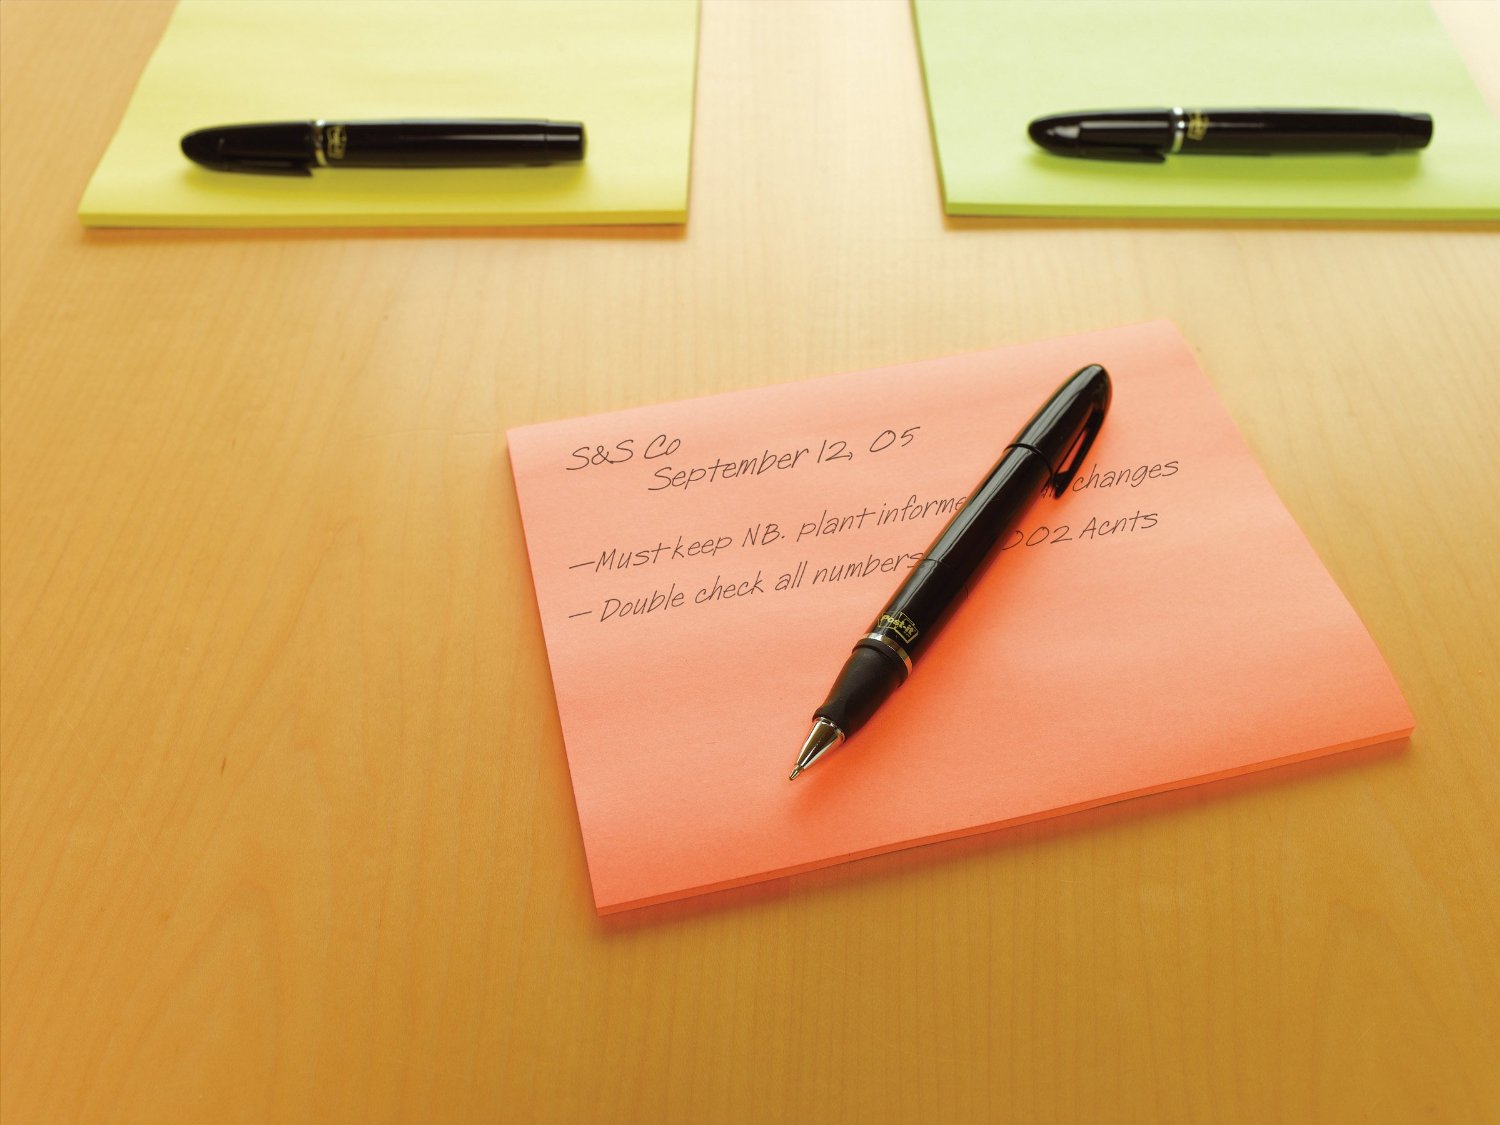 S&S Co
September 12, 05
—Must keep NB. plant informe changes
— Double check all numbers 002 Acnts
Post-it